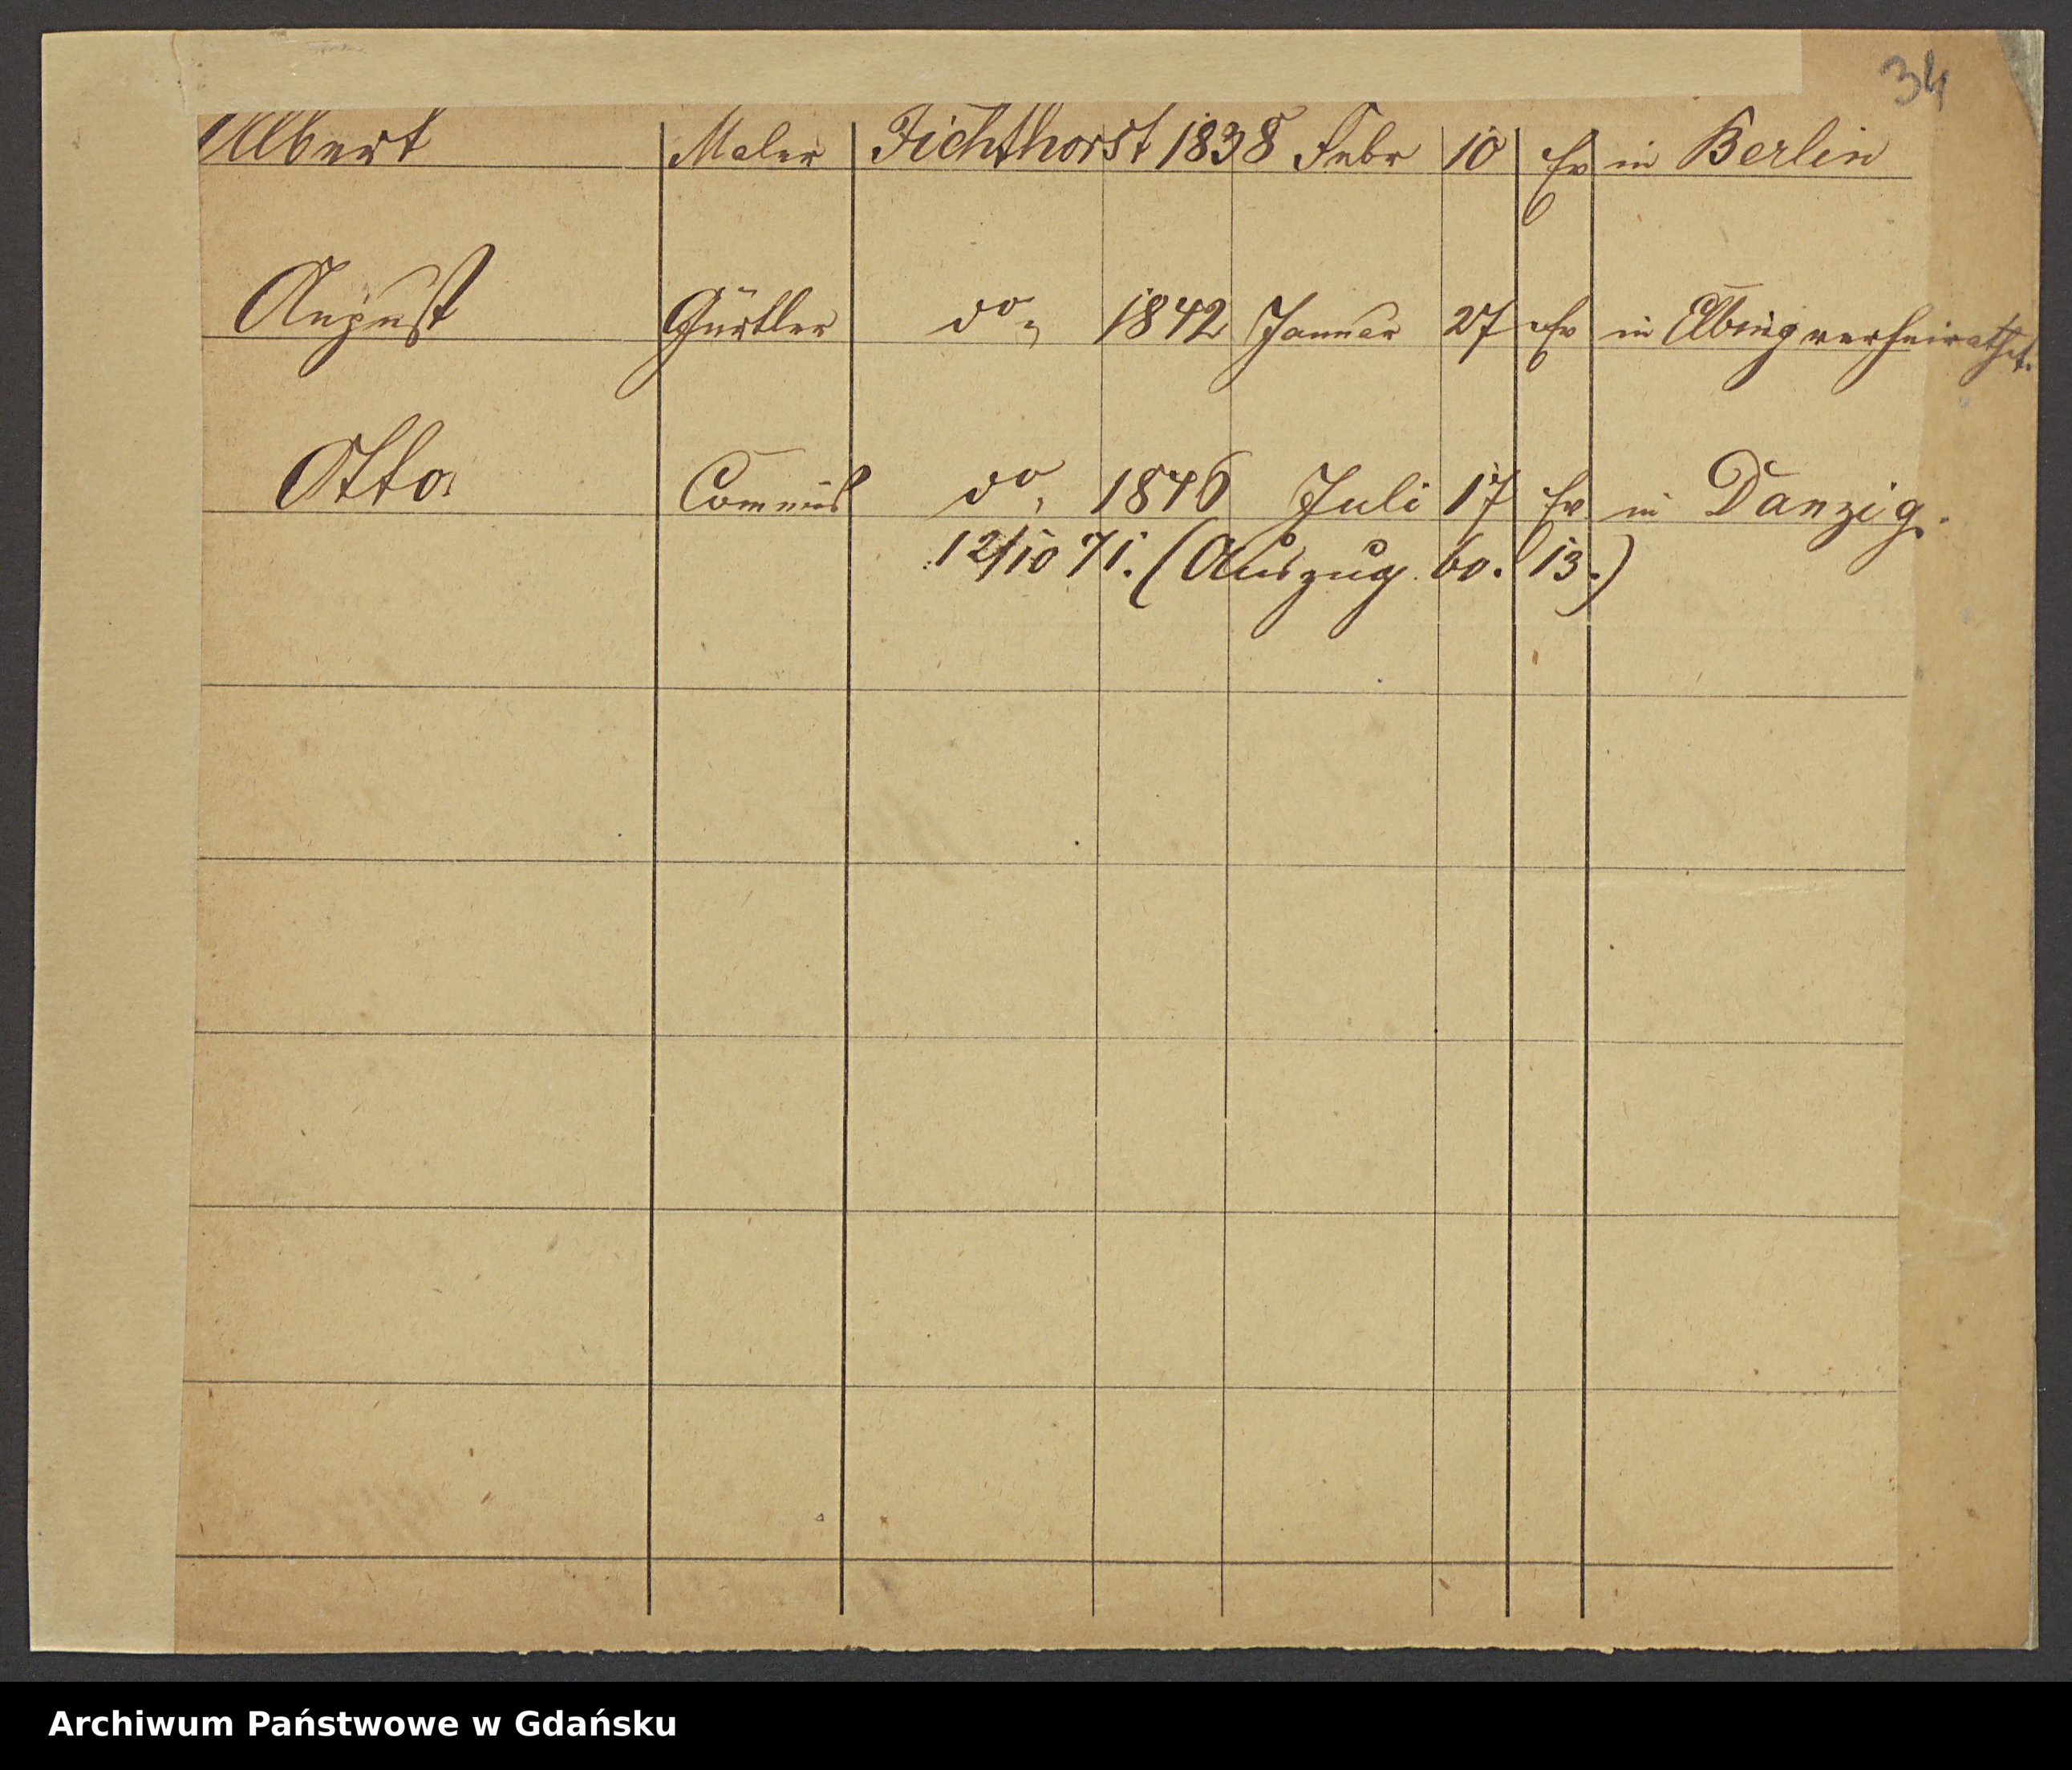 34
Albert Maler Fichthorst 1838 Febr 10 Ev in Berlin
August Gürtler do. 1842 Januar 27 Ev in Elbing verheirathet.
Otto Commis do. 1846 Juli 17 Ev in Danzig.
12/10 71. (Auszug 60. 13.)
Archiwum Państwowe w Gdańsku